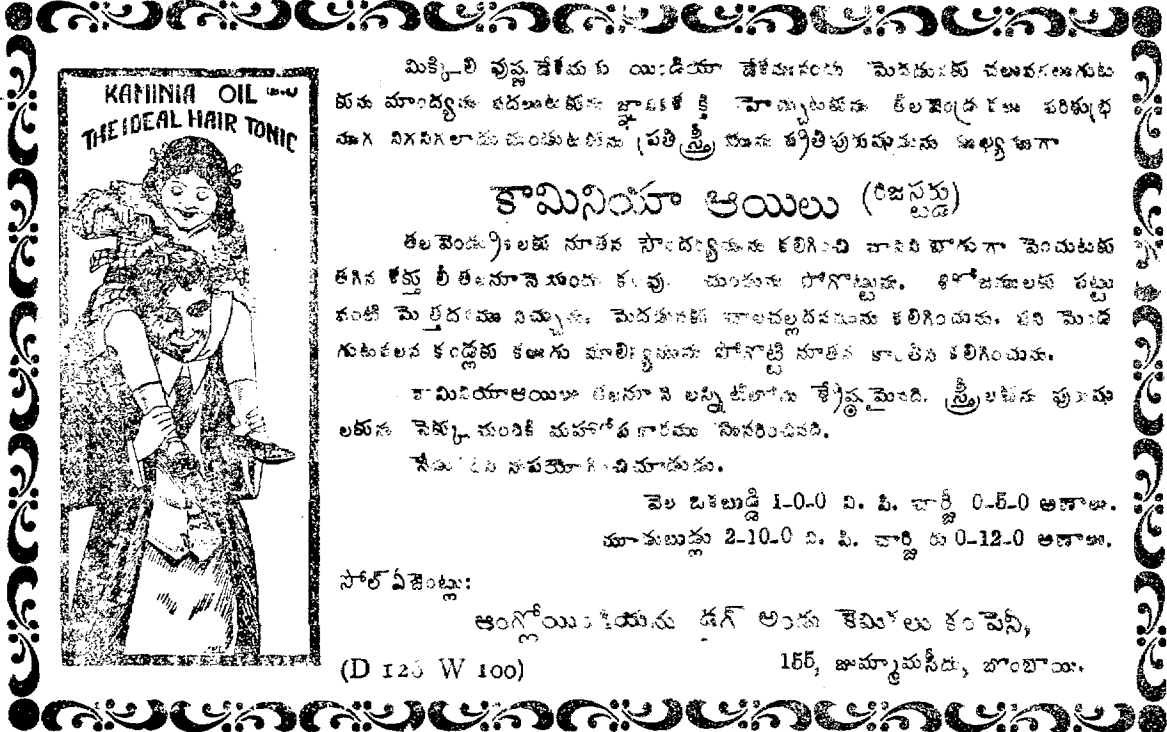 KAMINIA OIL
THE IDEAL HAIR TONIC
మిక్కిలి వుష్ణ దేశమకు యిండియా దేశమునందు మెదడుకు చలువగలుగుట
కును మాంద్యము వదలుటకును జ్ఞాపకశక్తి హెచ్చుటకును తలవెండ్రుకలు పరిశుభ్ర
ముగ నిగనిగలాడుచుండుటకును ప్రతి స్త్రీయును ప్రతిపురుషుడును ముఖ్యముగా
కామినియా ఆయిలు (రిజష్టర్డు)
తలవెండ్రుకలకు నూతన సౌందర్యమును కలిగించి వానిని బాగుగా పెంచుటకు
తగిన శక్తు లీ తలనూనెయందు కలవు. చుండును పోగొట్టును. శిరోజములకు పట్టు
వంటి మెత్తదనము నిచ్చును. మెదడునకు చాలచల్లదనమును కలిగించును. పని మెండ
గుటకలన కండ్లకు కలుగు మాలిన్యమును పోగొట్టి నూతన కాంతిని కలిగించును.
కామినియాఆయిలు తలనూనె లన్నిటిలోను శ్రేష్ఠమైనది. స్త్రీలకును పురుషు
లకును పెక్కుమందికి మహోపకారము నొనరించినది.
నేడు దీని నుపయోగించిచూడుడు.
వెల ఒకబుడ్డి 1-0-0 వి. పి. చార్జీ 0-5-0 అణాలు.
మూడుబుడ్లు 2-10-0 వి. పి. చార్జి కు 0-12-0 అణాలు.
సోల్ ఏజెంట్లు:
ఆంగ్లోయిండియను డ్రగ్ అండు కెమికలు కంపెనీ,
155, జుమ్మామసీదు, బొంబాయి.
(D 125 W 100)